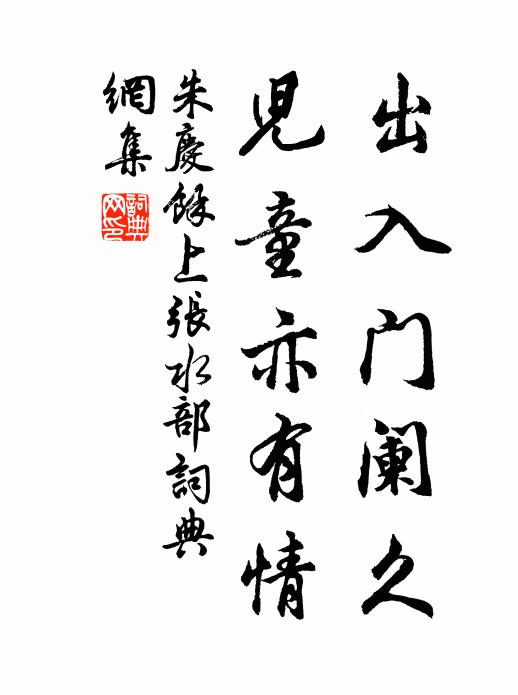 出入门阑久
兒童亦有情
朱慶餘上張水部詞典
網集
詞典
网印